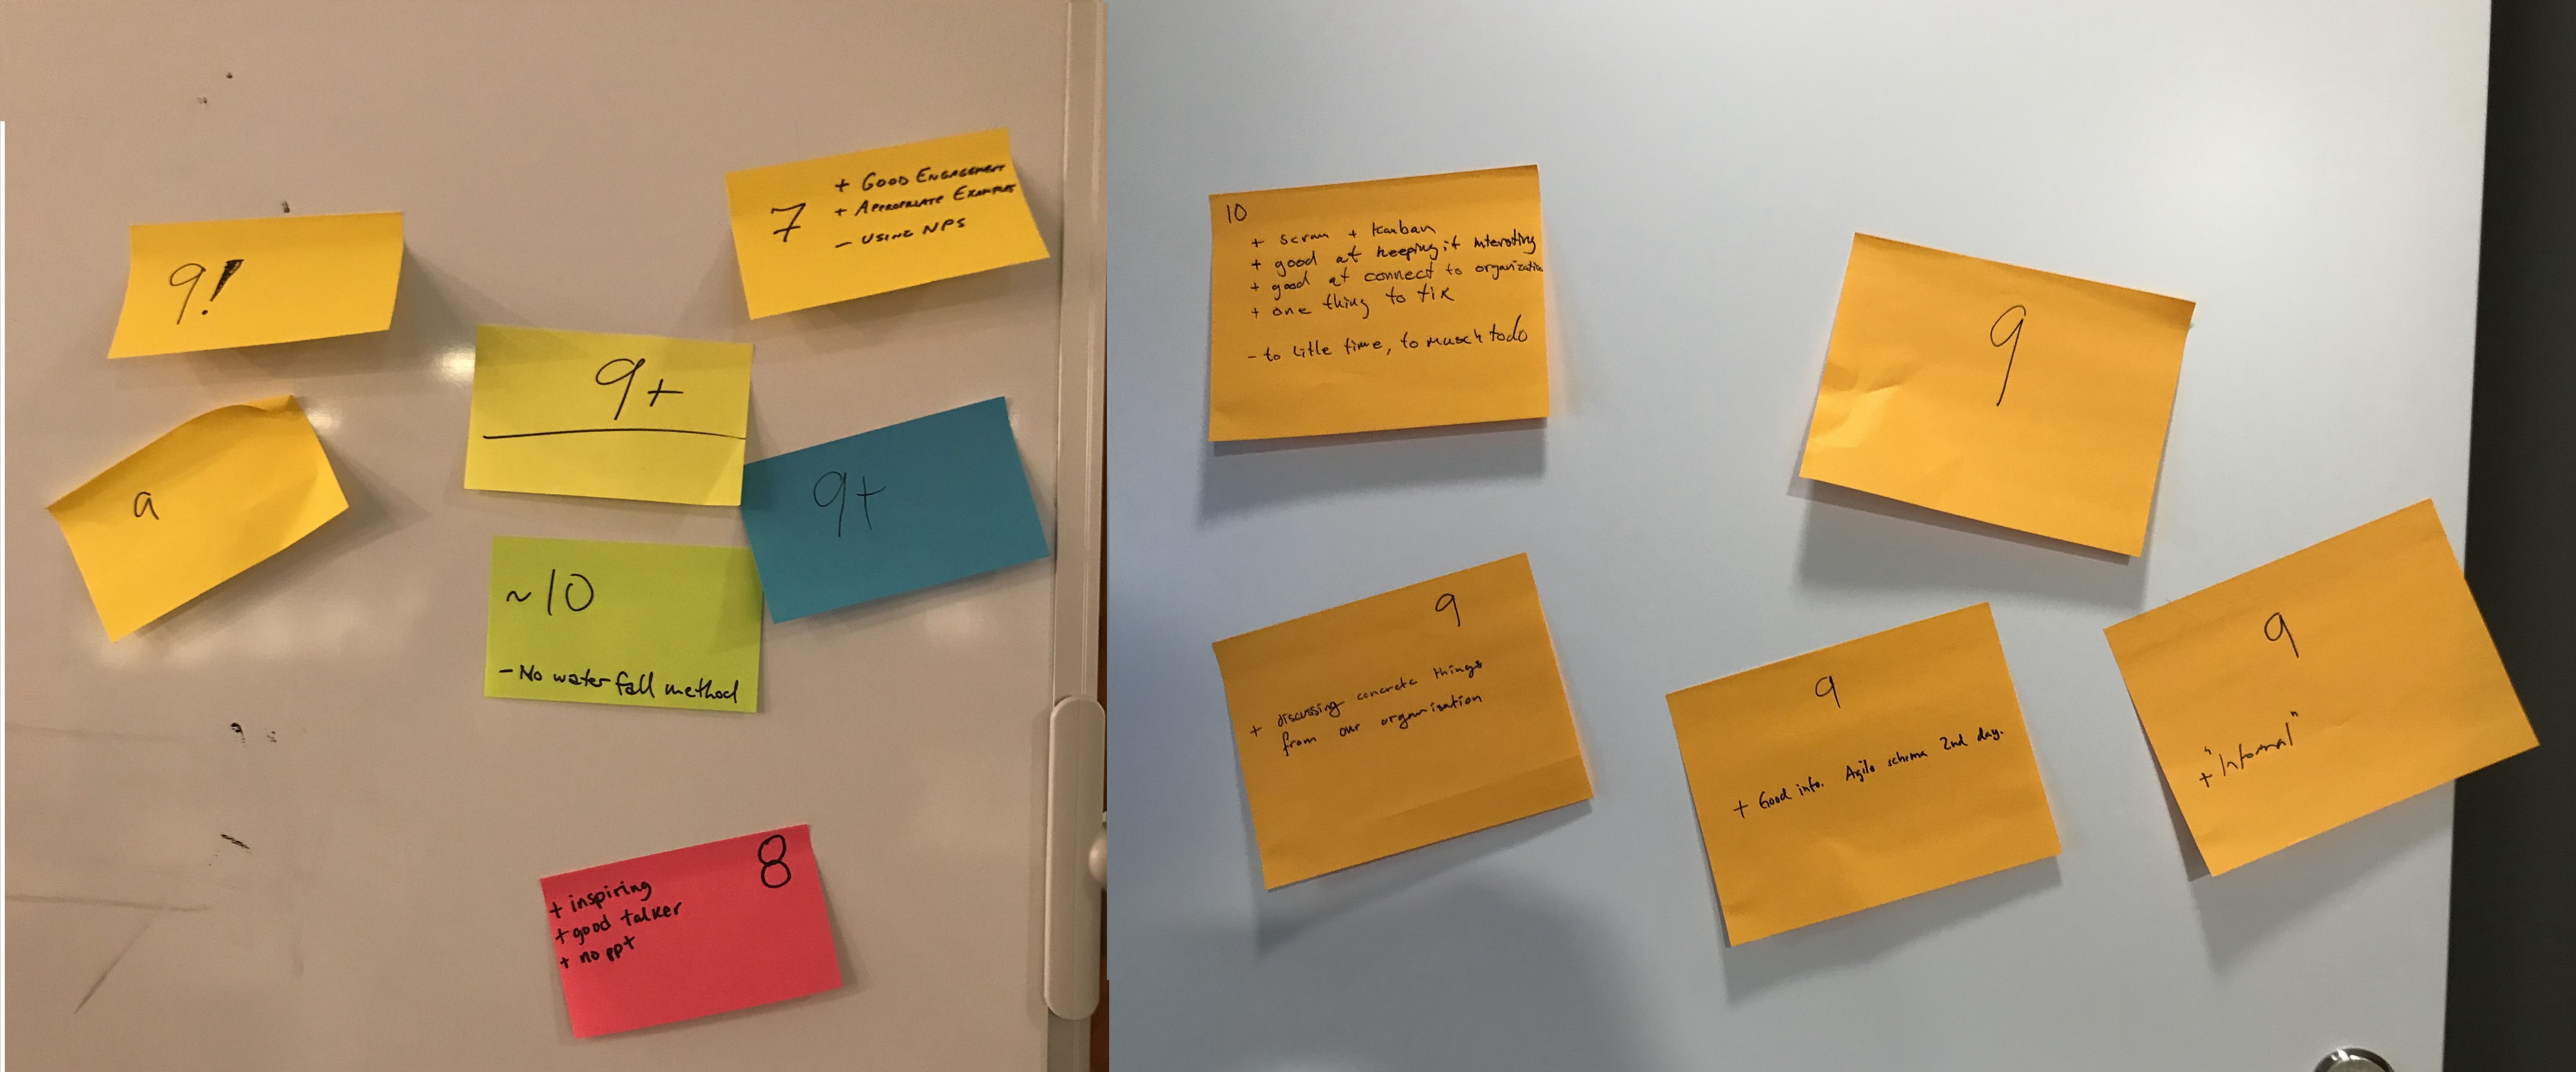 9!
7
+ GOOD ENGAGEMENT
+ APPROPRIATE EXAMPLES
- USING NPS
9+
9
9+
~10
- No water fall method
8
+ inspiring
+ good talker
+ no ppt
10
+ scrum + kanban
+ good at keeping it interesting
+ good at connect to organization
+ one thing to fix
- to litle time, to much todo
9
9
+ discussing concrete things
from our organisation
9
+ Good info. Agile schema 2nd day.
9
+ "Informal"